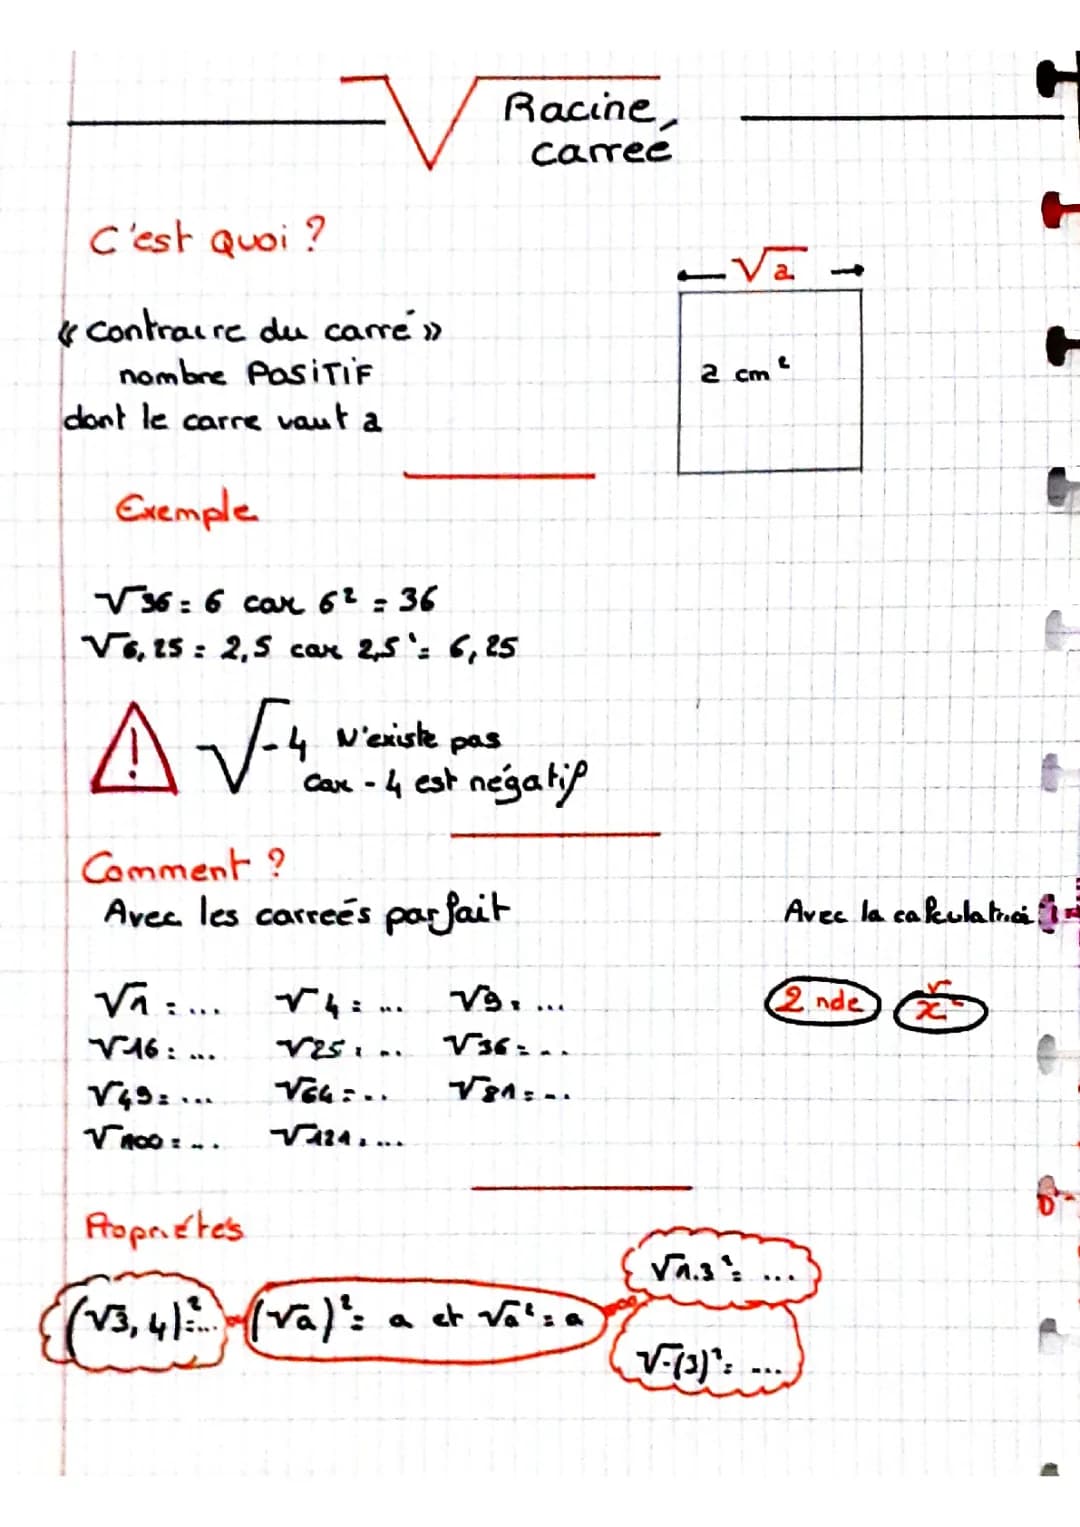 Racine
carreé
C'est Quoi ?
√a
« Contraire du carré »
nombre POSITIF
dont le carre vaut a
a cm²
Exemple
√36 = 6 car 6² = 36
√6,25 = 2,5 car 2,5² = 6,25
!
√-4 N'existe pas
Car -4 est négatif
Comment ?
Avec les carreés parfait
Avec la calculatrice
√1 = ... √4 = ... √9 = ...
√16 = ... √25 = ... √36 = ...
√49 = ... √64 = ... √81 = ...
√100 = ... √121 = ...
2 nde √ x²
Propriétés
√1.3² = ...
(√3,4)² = ... (√a)² = a et √a² = a
√-(3)² = ...